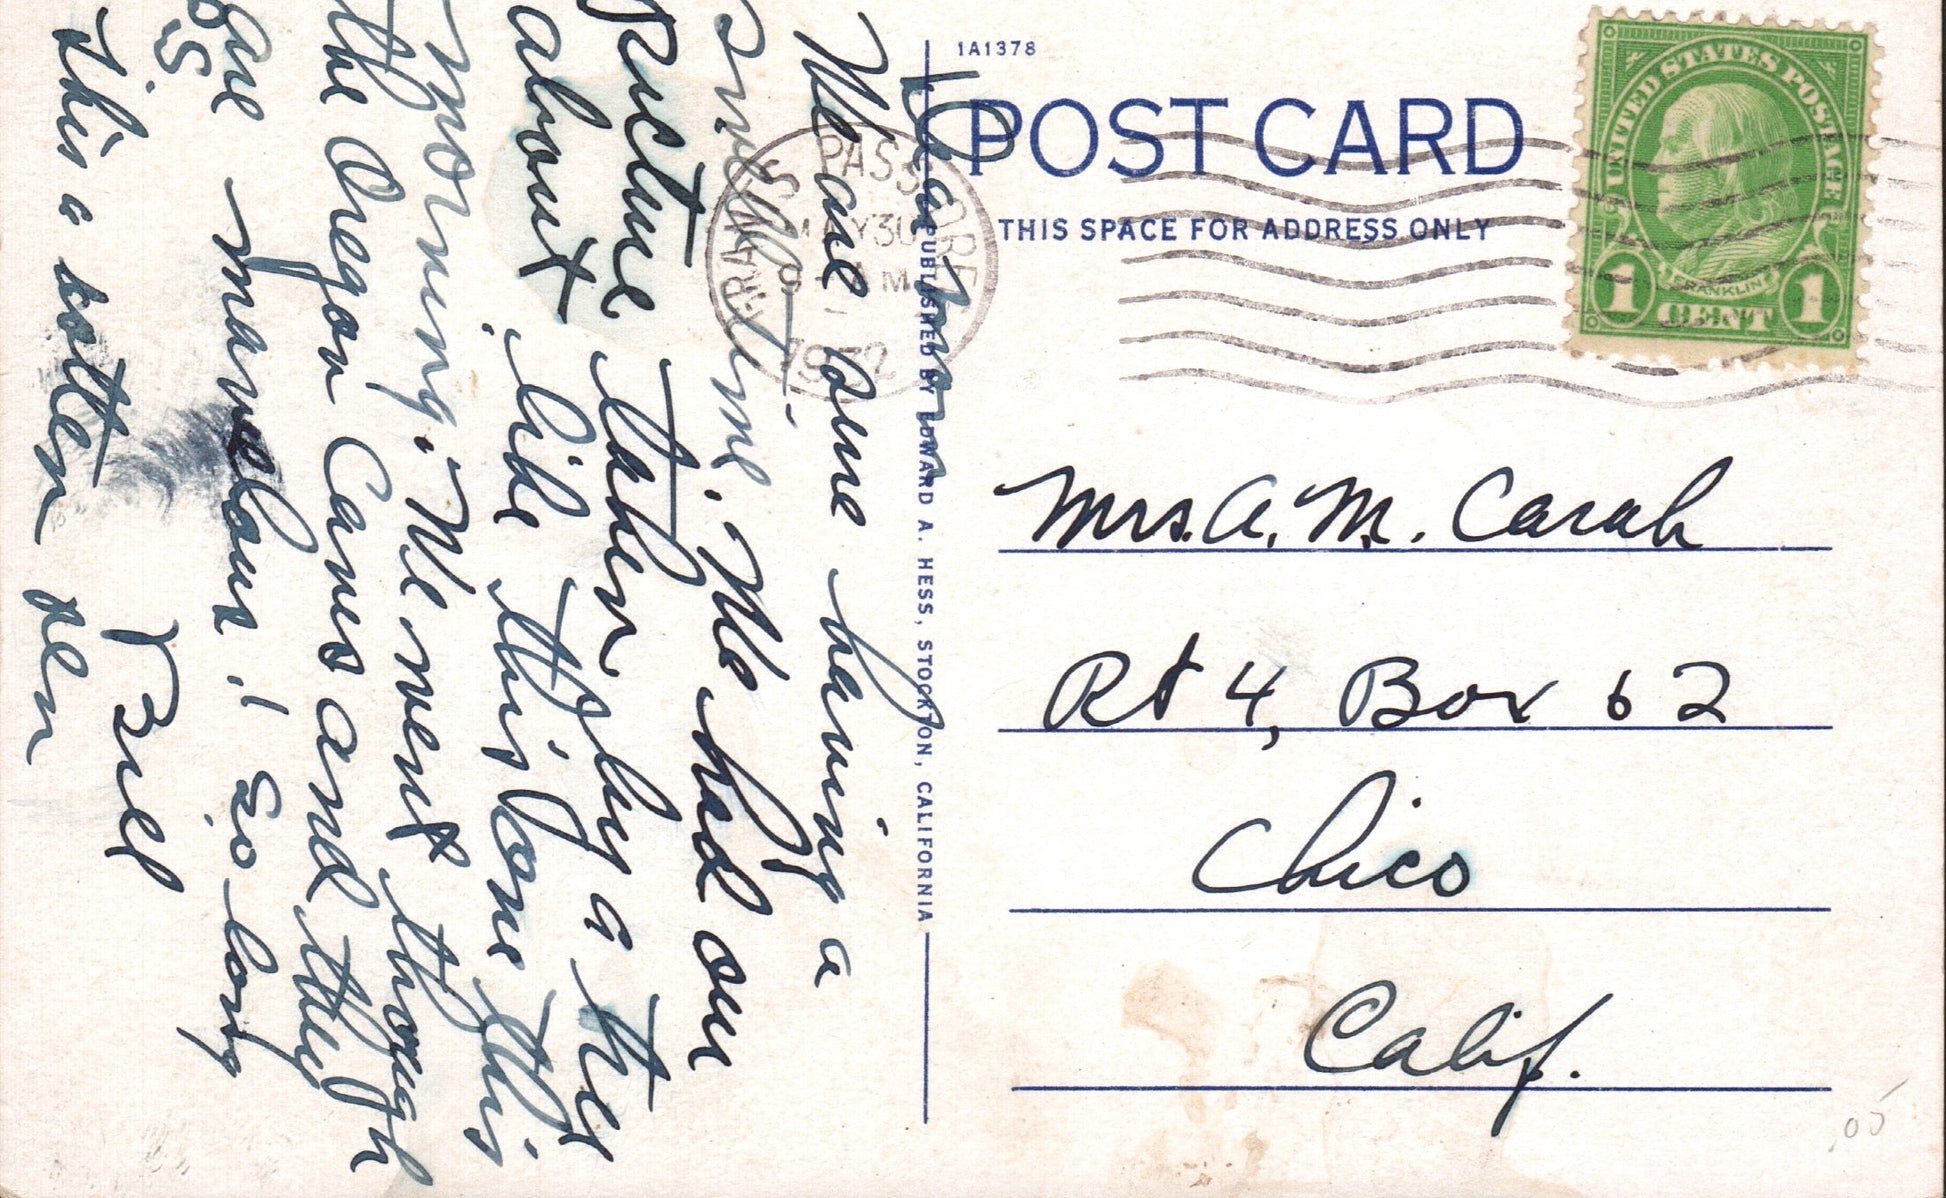 1A1378
POST CARD
THIS SPACE FOR ADDRESS ONLY
UNITED STATES POSTAGE
FRANKLIN
1 CENT 1
GRANTS PASS, ORE.
MAY 30
9 AM
1932
PUBLISHED BY EDWARD A. HESS, STOCKTON, CALIFORNIA
Mrs. A. M. Carah
Rt 4, Box 62
Chico
Calif.
.05
Dear Mom
We are four having a
swell time. We had our
picture taken by a tree
about like this one this
morning. We went through
the Oregon Caves and they
are marvelous! So long
Bill
PS
This a rotten pen